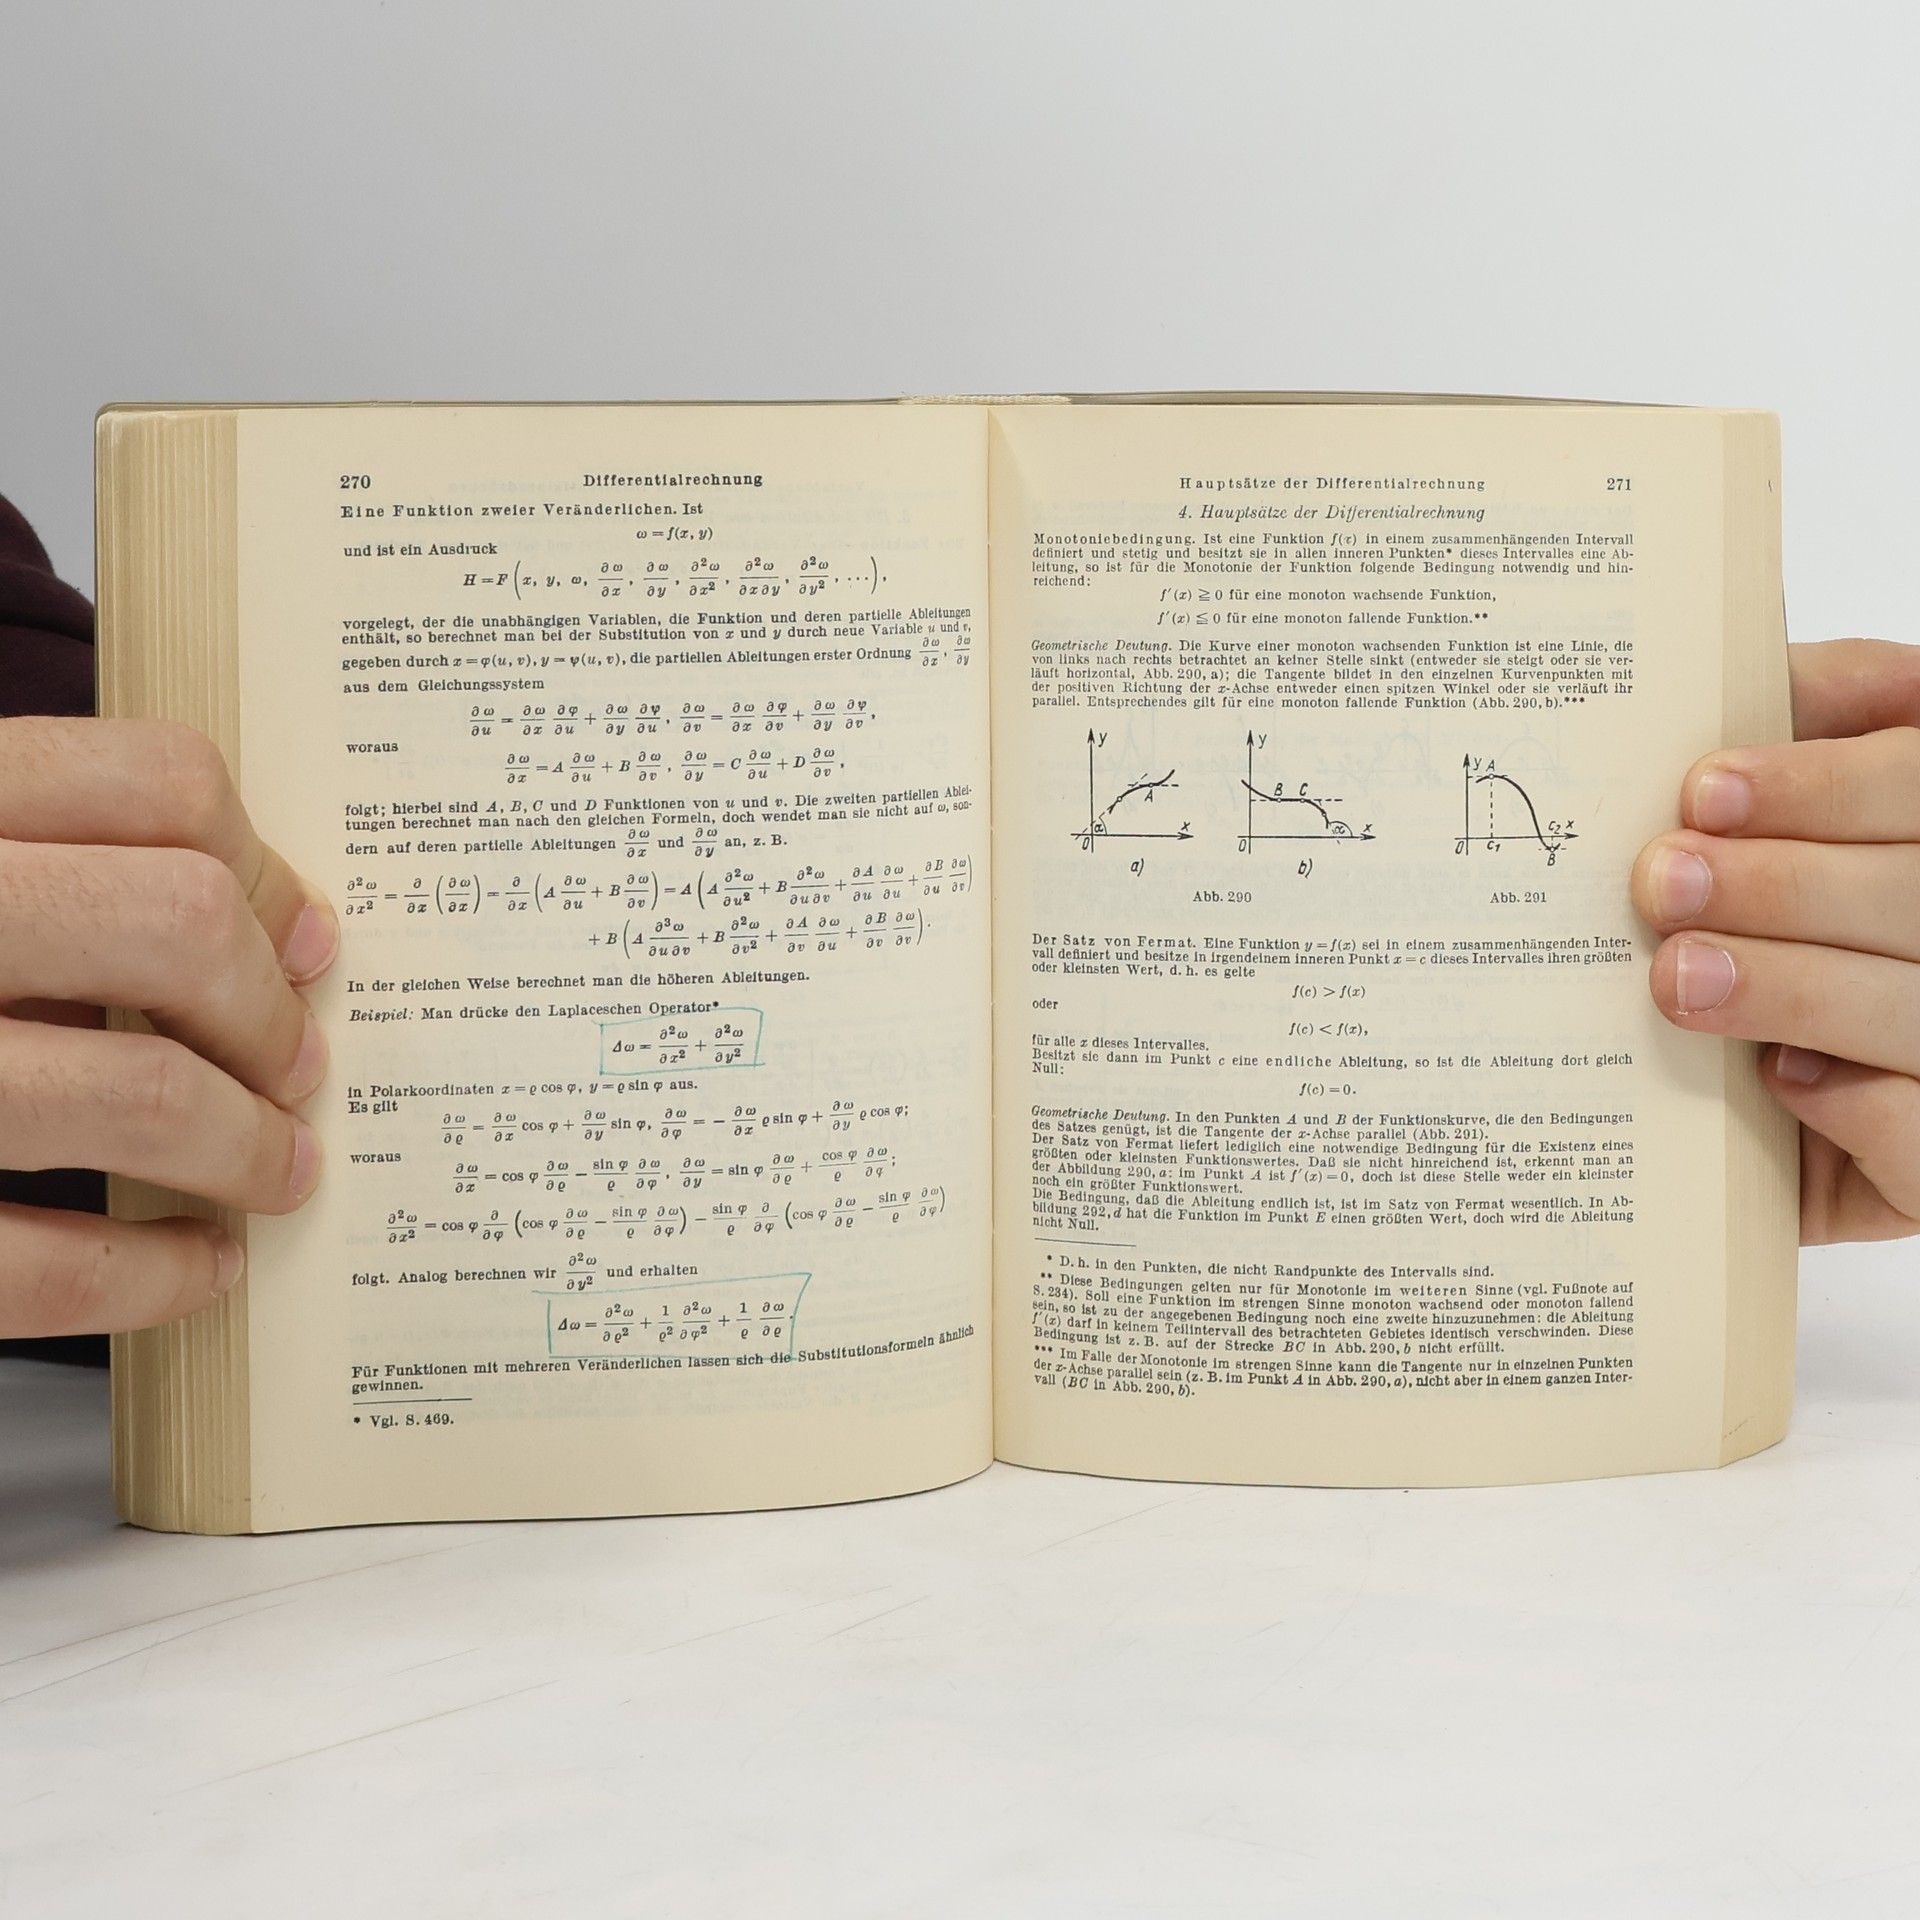 270
Differentialrechnung
Eine Funktion zweier Veränderlichen. Ist
ω = f(x, y)
und ist ein Ausdruck
H = F (x, y, ω, ∂ω/∂x, ∂ω/∂y, ∂²ω/∂x², ∂²ω/∂x∂y, ∂²ω/∂y², ...),
vorgelegt, der die unabhängigen Variablen, die Funktion und deren partielle Ableitungen
enthält, so berechnet man bei der Substitution von x und y durch neue Variable u und v,
gegeben durch x = φ(u, v), y = ψ(u, v), die partiellen Ableitungen erster Ordnung ∂ω/∂x, ∂ω/∂y
aus dem Gleichungssystem
∂ω/∂u = ∂ω/∂x ∂φ/∂u + ∂ω/∂y ∂ψ/∂u, ∂ω/∂v = ∂ω/∂x ∂φ/∂v + ∂ω/∂y ∂ψ/∂v,
woraus
∂ω/∂x = A ∂ω/∂u + B ∂ω/∂v, ∂ω/∂y = C ∂ω/∂u + D ∂ω/∂v,
folgt; hierbei sind A, B, C und D Funktionen von u und v. Die zweiten partiellen Ablei-
tungen berechnet man nach den gleichen Formeln, doch wendet man sie nicht auf ω, son-
dern auf deren partielle Ableitungen ∂ω/∂x und ∂ω/∂y an, z. B.
∂²ω/∂x² = ∂/∂x (∂ω/∂x) = ∂/∂x (A ∂ω/∂u + B ∂ω/∂v) = A (A ∂²ω/∂u² + B ∂²ω/∂u∂v + ∂A/∂u ∂ω/∂u + ∂B/∂u ∂ω/∂v)
+ B (A ∂³ω/∂u∂v + B ∂²ω/∂v² + ∂A/∂v ∂ω/∂u + ∂B/∂v ∂ω/∂v).
In der gleichen Weise berechnet man die höheren Ableitungen.
Beispiel: Man drücke den Laplaceschen Operator*
Δω = ∂²ω/∂x² + ∂²ω/∂y²
in Polarkoordinaten x = ϱ cos φ, y = ϱ sin φ aus.
Es gilt
∂ω/∂ϱ = ∂ω/∂x cos φ + ∂ω/∂y sin φ, ∂ω/∂φ = − ∂ω/∂x ϱ sin φ + ∂ω/∂y ϱ cos φ;
woraus
∂ω/∂x = cos φ ∂ω/∂ϱ − sin φ/ϱ ∂ω/∂φ, ∂ω/∂y = sin φ ∂ω/∂ϱ + cos φ/ϱ ∂ω/∂φ;
∂²ω/∂x² = cos φ ∂/∂φ (cos φ ∂ω/∂ϱ − sin φ/ϱ ∂ω/∂φ) − sin φ/ϱ ∂/∂φ (cos φ ∂ω/∂ϱ − sin φ/ϱ ∂ω/∂φ)
folgt. Analog berechnen wir ∂²ω/∂y² und erhalten
Δω = ∂²ω/∂ϱ² + 1/ϱ² ∂²ω/∂φ² + 1/ϱ ∂ω/∂ϱ.
Für Funktionen mit mehreren Veränderlichen lassen sich die Substitutionsformeln ähnlich
gewinnen.
* Vgl. S. 469.
Hauptsätze der Differentialrechnung
271
4. Hauptsätze der Differentialrechnung
Monotoniebedingung. Ist eine Funktion f(x) in einem zusammenhängenden Intervall
definiert und stetig und besitzt sie in allen inneren Punkten* dieses Intervalles eine Ab-
leitung, so ist für die Monotonie der Funktion folgende Bedingung notwendig und hin-
reichend:
f′(x) ≧ 0 für eine monoton wachsende Funktion,
f′(x) ≦ 0 für eine monoton fallende Funktion.**
Geometrische Deutung. Die Kurve einer monoton wachsenden Funktion ist eine Linie, die
von links nach rechts betrachtet an keiner Stelle sinkt (entweder sie steigt oder sie ver-
läuft horizontal, Abb. 290, a); die Tangente bildet in den einzelnen Kurvenpunkten mit
der positiven Richtung der x-Achse entweder einen spitzen Winkel oder sie verläuft ihr
parallel. Entsprechendes gilt für eine monoton fallende Funktion (Abb. 290, b).***
y A α 0 x
a)
y B C α 0 x
b)
Abb. 290
y A 0 C₁ C₂ x B
Abb. 291
Der Satz von Fermat. Eine Funktion y = f(x) sei in einem zusammenhängenden Inter-
vall definiert und besitze in irgendeinem inneren Punkt x = c dieses Intervalles ihren größten
oder kleinsten Wert, d. h. es gelte
f(c) > f(x)
oder
f(c) < f(x),
für alle x dieses Intervalles.
Besitzt sie dann im Punkt c eine endliche Ableitung, so ist die Ableitung dort gleich
Null:
f(c) = 0.
Geometrische Deutung. In den Punkten A und B der Funktionskurve, die den Bedingungen
des Satzes genügt, ist die Tangente der x-Achse parallel (Abb. 291).
Der Satz von Fermat liefert lediglich eine notwendige Bedingung für die Existenz eines
größten oder kleinsten Funktionswertes. Daß sie nicht hinreichend ist, erkennt man an
der Abbildung 290, a: im Punkt A ist f′(x) = 0, doch ist diese Stelle weder ein kleinster
noch ein größter Funktionswert.
Die Bedingung, daß die Ableitung endlich ist, ist im Satz von Fermat wesentlich. In Ab-
bildung 292, d hat die Funktion im Punkt E einen größten Wert, doch wird die Ableitung
nicht Null.
* D. h. in den Punkten, die nicht Randpunkte des Intervalls sind.
** Diese Bedingungen gelten nur für Monotonie im weiteren Sinne (vgl. Fußnote auf
S. 234). Soll eine Funktion im strengen Sinne monoton wachsend oder monoton fallend
sein, so ist zu der angegebenen Bedingung noch eine zweite hinzuzunehmen: die Ableitung
f′(x) darf in keinem Teilintervall des betrachteten Gebietes identisch verschwinden. Diese
Bedingung ist z. B. auf der Strecke BC in Abb. 290, b nicht erfüllt.
*** Im Falle der Monotonie im strengen Sinne kann die Tangente nur in einzelnen Punkten
der x-Achse parallel sein (z. B. im Punkt A in Abb. 290, a), nicht aber in einem ganzen Inter-
vall (BC in Abb. 290, b).